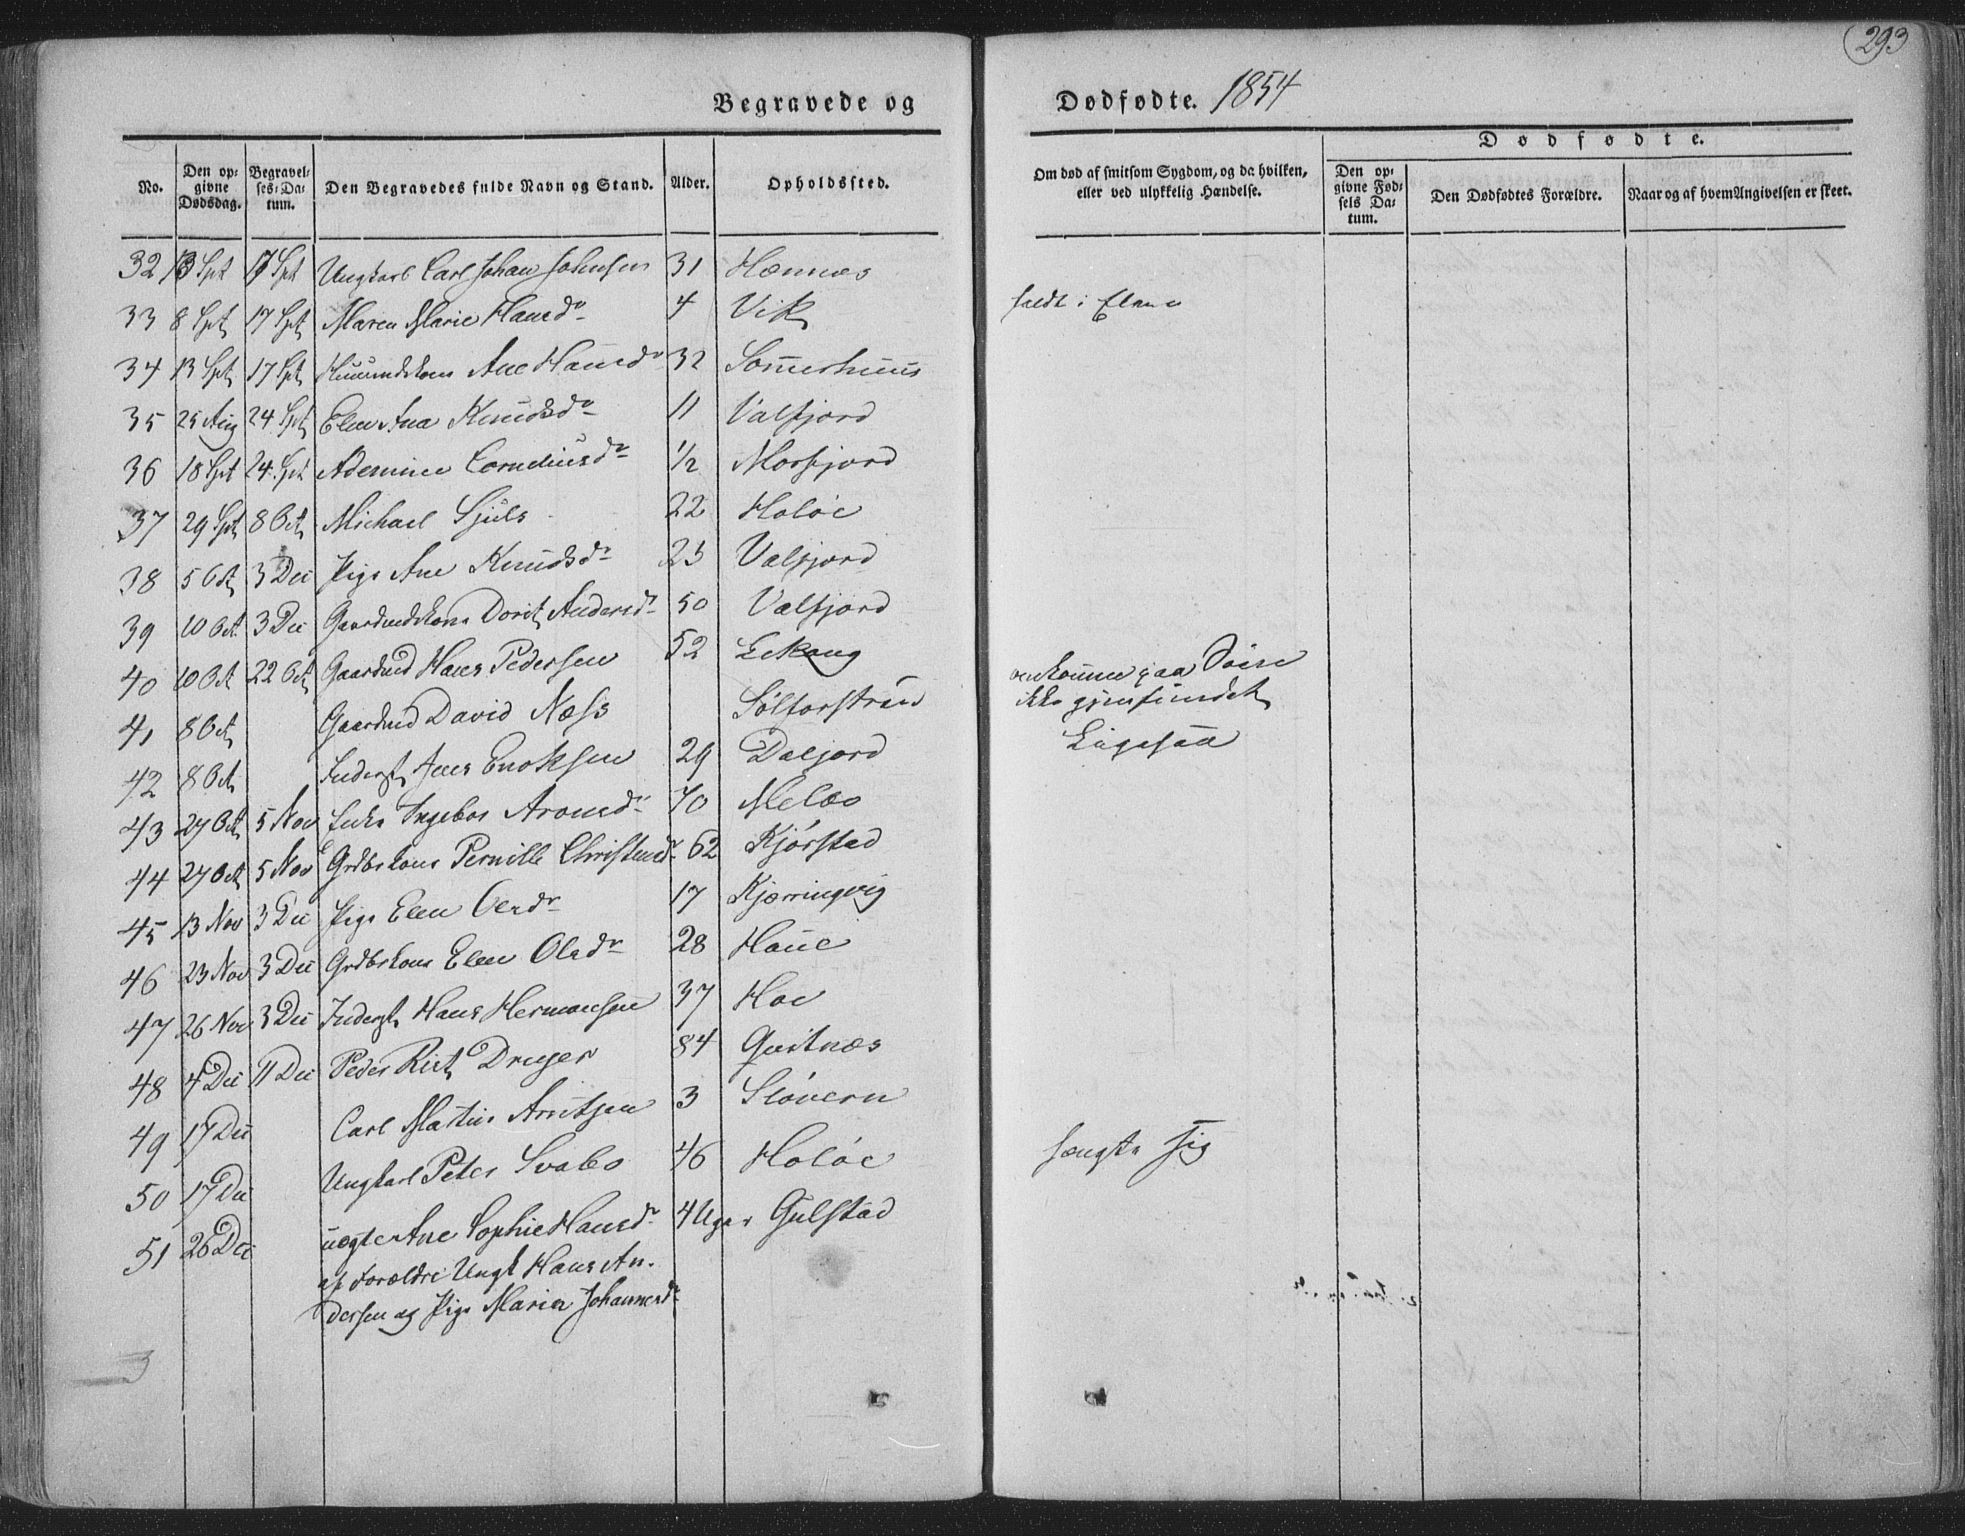 293
Begravede og Dødfødte. 1854
No.
Den opgivne Dødsdag.
Begravelses-Datum.
Den Begravedes fulde Navn og Stand.
Alder.
Opholdssted.
Om død af smitsom Sygdom, og da hvilken, eller ved ulykkelig Hændelse.
Dødfødte.
Den opgivne Fødsels Datum.
Den Dødfødtes Forældre.
Naar og af hvem Angivelsen er skeet.
32 13 Spt 17 Spt Ungkarl Carl Johan Johnsen 31 Hennes
33 8 Spt 17 Spt Maren Marie Hansdr 4 Vik faldt i Elven
34 13 Spt 17 Spt Huusmdskone Ane Hansdr 32 Sommerhuus
35 25 Aug 24 Spt Elen Ana Knudsdr 11 Valfjord
36 18 Spt 24 Spt Corneliusdr 1/2 Morfjord
37 29 Spt 8 Oct Michael Sjuls 22 Holøe
38 5 Oct 3 Dec Pige Ane Knudsdr 23 Valfjord
39 10 Oct 3 Dec Gaardmdskone Dorit Andersdr 50 Valfjord
40 10 Oct 22 Oct Gaardmd Hans Pedersen 52 Lekang omkommen paa Søen
41 8 Oct Gaardmd David Næss Sølforstrand ikke gjenfundet
42 8 Oct Inderst Jens Enoksen 29 Daljord Ligesaa
43 27 Oct 5 Nov Enke Ingebor Aronsdr 70 Melæe
44 27 Oct 5 Nov Grdbrkone Pernille Christensdr 62 Kjørstad
45 13 Nov 3 Dec Pige Elen Olsdr 17 Kjærringvig
46 23 Nov 3 Dec Grdbrkone Elen Olsdr 28 Haue
47 26 Nov 3 Dec Inderst Hans Hermansen 37 Hoe
48 4 Dec 11 Dec Peder Rist Dreyer 84 Qvitnæs
49 17 Dec Carl Matias Arntsen 3 Sløveren
50 17 Dec Ungkarl Peter Svabo 46 Holøe hængte sig
51 26 Dec uægte Ane Sophie Hansdr 4 Uger Gulstad
af Forældre Ungk Hans An-
dersen og Pige Maria Johannesdr